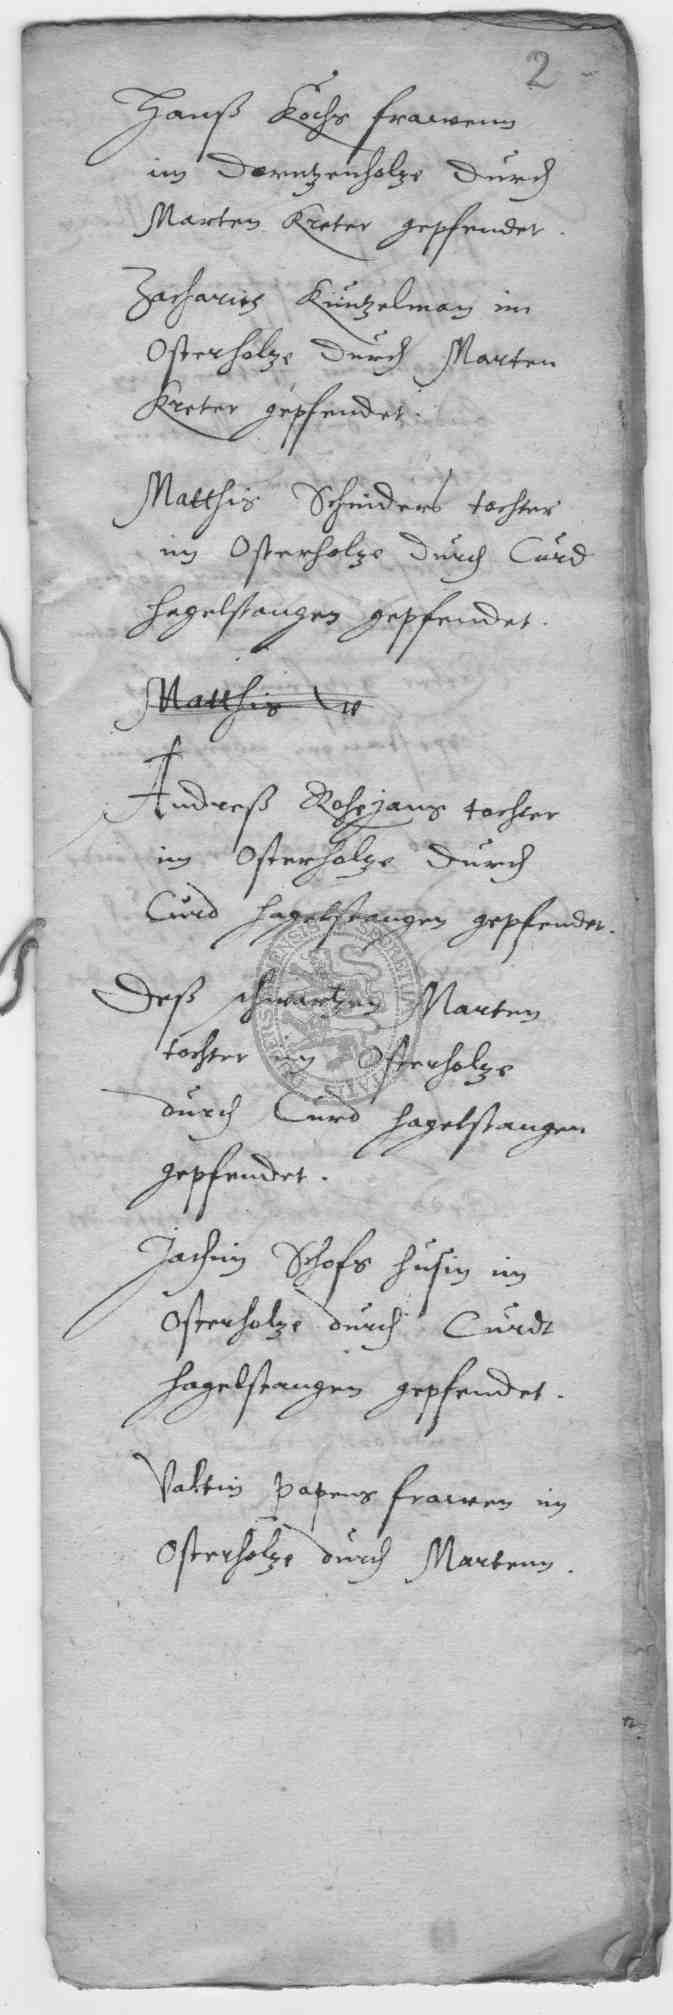 2
Hanß Kochs frawenn
im Dorntzenholze durch
Marten Kreter gepfendet.
Zacharies Küntzelman im
Osterholze durch Marten
Kreter gepfendet.
Matthis Schniders tochter
im Osterholze durch Curd
Hagelstangen gepfendet.
Matthis
Andreß Rosejans tochter
im Osterholze durch
Curd Hagelstangen gepfendet.
Deß schwartzen Marten
tochter im Osterholze
durch Curd Hagelstangen
gepfendet.
Jachim Schofs husin im
Osterholze durch Curdt
Hagelstangen gepfendet.
Valtin Papens frawen im
Osterholze durch Martenn.